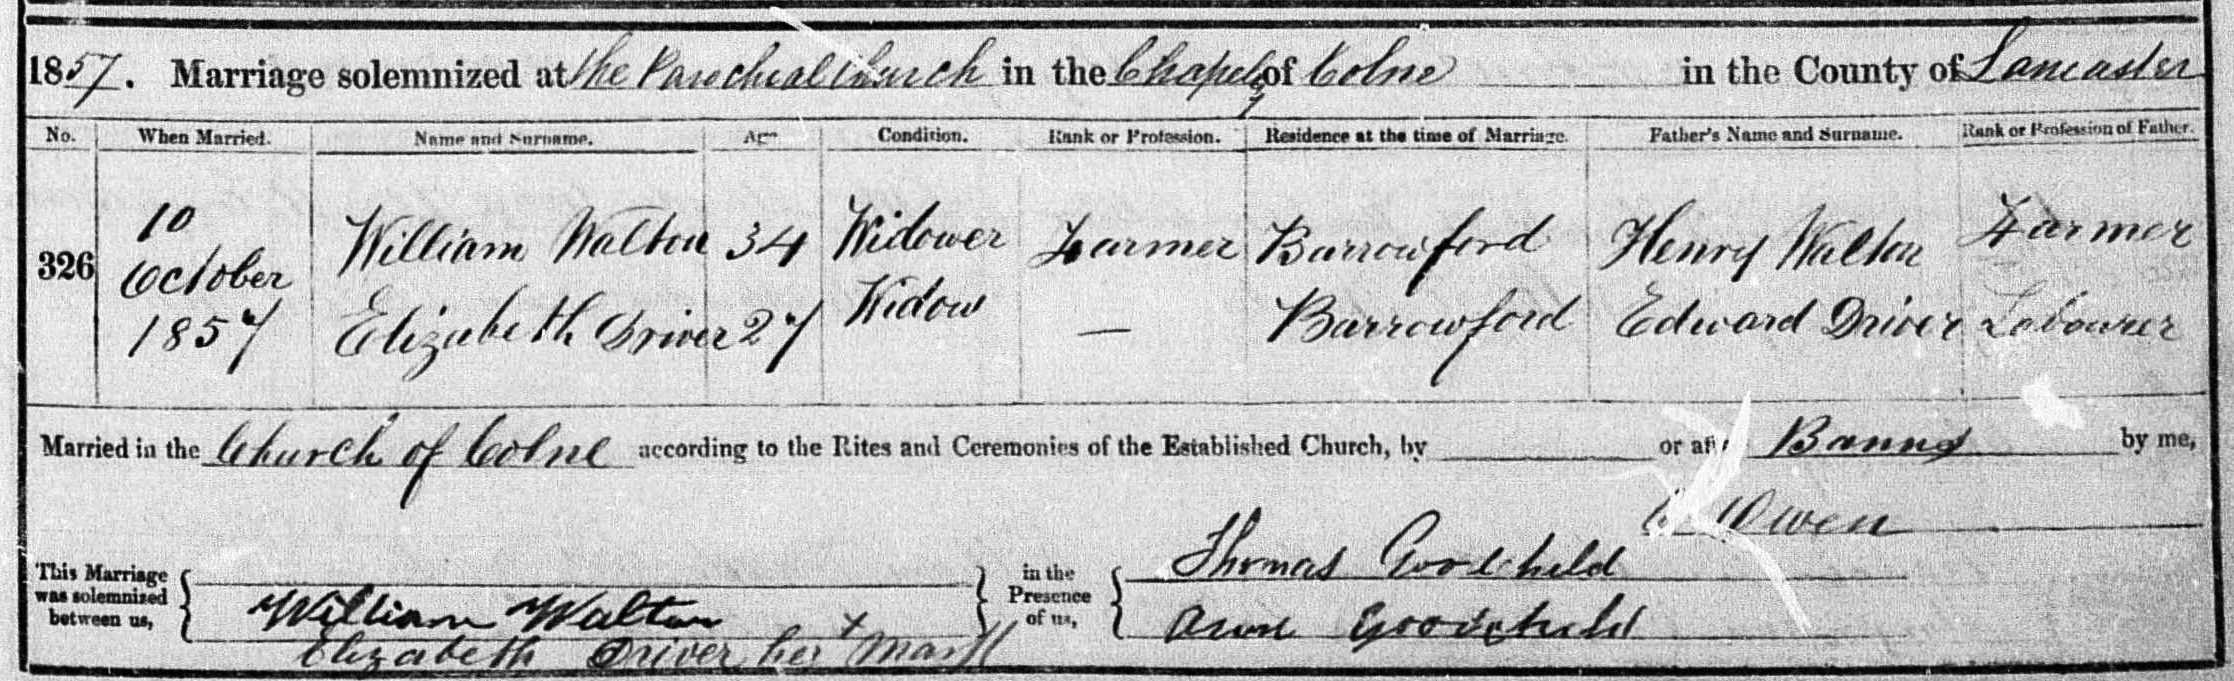 1857. Marriage solemnized at the Parochial Church in the Chapely of Colne in the County of Lancaster
No. When Married. Name and Surname. Age Condition. Rank or Profession. Residence at the time of Marriage. Father's Name and Surname. Rank or Profession of Father.
326 10 October 1857 William Walton 34 Widower Farmer Barrowford Henry Walton Farmer
Elizabeth Driver 27 Widow — Barrowford Edward Driver Labourer
Married in the Church of Colne according to the Rites and Ceremonies of the Established Church, by or after Banns by me,
Owen
This Marriage was solemnized between us, William Walton in the Presence of us, Thomas Goodchild
Elizabeth Driver her x mark Goodchild